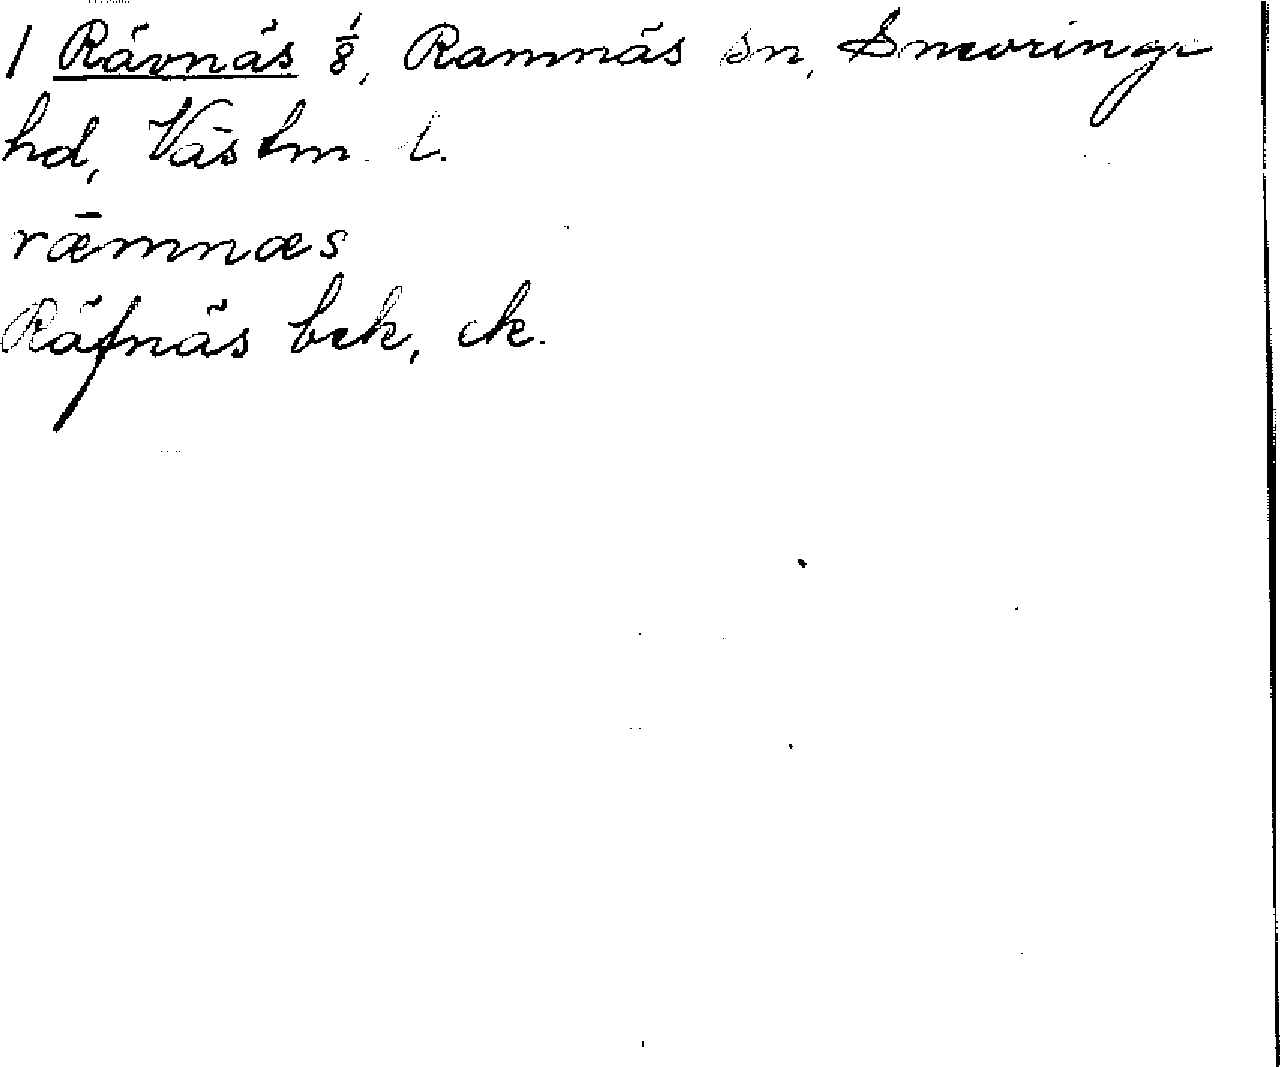 1 Rävnäs 1/8, Ramnäs sn, Snevringe
hd, Västm. l.
rǣmnæs
Räfnäs bek, ek.